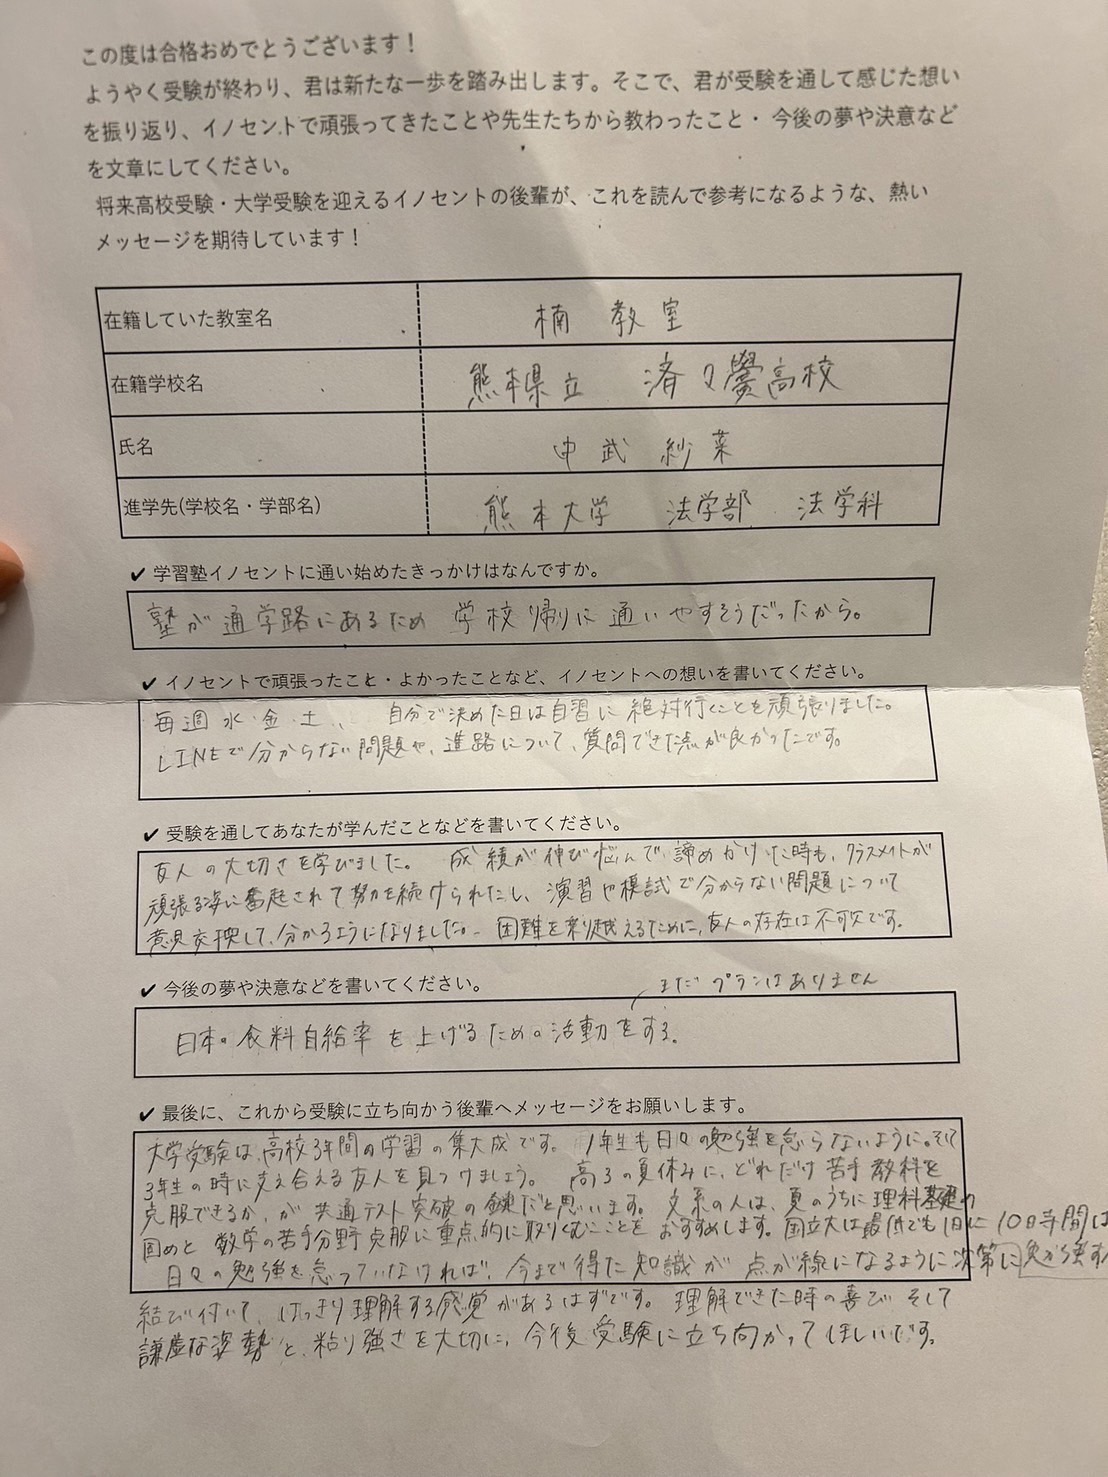 この度は合格おめでとうございます！
ようやく受験が終わり、君は新たな一歩を踏み出します。そこで、君が受験を通して感じた想い
を振り返り、イノセントで頑張ってきたことや先生たちから教わったこと・ 今後の夢や決意など
を文章にしてください。
将来高校受験・大学受験を迎えるイノセントの後輩が、これを読んで参考になるような、熱い
メッセージを期待しています！
在籍していた教室名 楠 教室
在籍学校名 熊本県立 済々黌高校
氏名 中武 紗菜
進学先(学校名・学部名) 熊本大学 法学部 法学科
✔ 学習塾イノセントに通い始めたきっかけはなんですか。
塾が通学路にあるため 学校帰りに通いやすそうだったから。
✔ イノセントで頑張ったこと・よかったことなど、イノセントへの想いを書いてください。
毎週 水・金・土、 自分で決めた日は自習に絶対行くことを頑張りました。
LINEで分からない問題や、進路について、質問できた点が良かったです。
✔ 受験を通してあなたが学んだことなどを書いてください。
友人の大切さを学びました。 成績が伸び悩んで、諦めかけた時も、クラスメイトが
頑張る姿に奮起されて努力を続けられたし、演習や模試で分からない問題について
意見交換して、分かるようになりました。 困難を乗り越えるために、友人の存在は不可欠です。
✔ 今後の夢や決意などを書いてください。
まだ プランはありません
日本の食料自給率を上げるための活動をする。
✔ 最後に、これから受験に立ち向かう後輩へメッセージをお願いします。
大学受験は、高校3年間の学習の集大成です。 1年生も日々の勉強を怠らないように。そして
3年生の時に支え合える友人を見つけましょう。 高3の夏休みに、どれだけ苦手教科を
克服できるか、が共通テスト突破の鍵だと思います。文系の人は、夏のうちに理科基礎の
固めと 数学の苦手分野克服に重点的に取りくむことをおすすめします。国立大は最低でも1日に10時間は
勉強す
日々の勉強を怠っていなければ、今まで得た知識が 点が線になるように次第に
結び付いて、はっきり理解する感覚があるはずです。理解できた時の喜び、そして
謙虚な姿勢と、粘り強さを大切に、今後受験に立ち向かってほしいです。